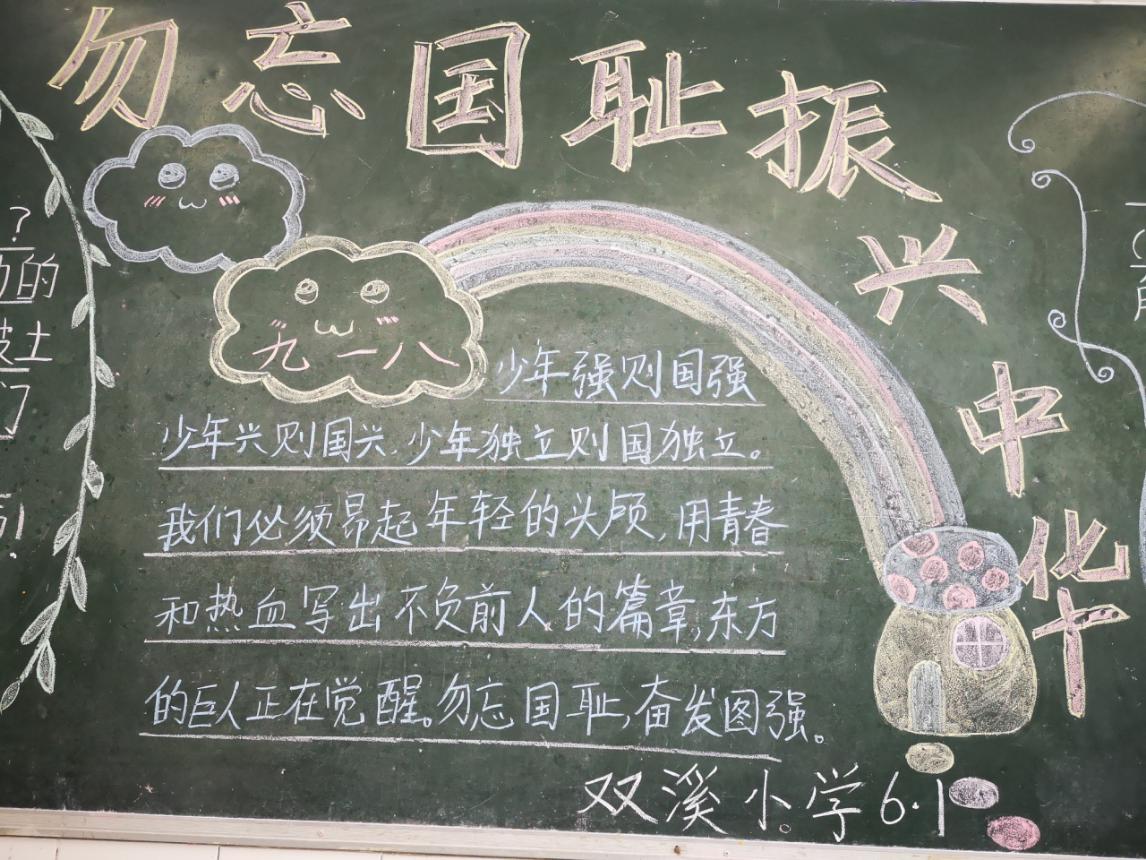 勿忘国耻振兴中华
九一八
少年强则国强
少年兴则国兴,少年独立则国独立。
我们必须昂起年轻的头颅,用青春
和热血写出不负前人的篇章,东方
的巨人正在觉醒。勿忘国耻,奋发图强。
双溪小学6.1
?
的
土
们